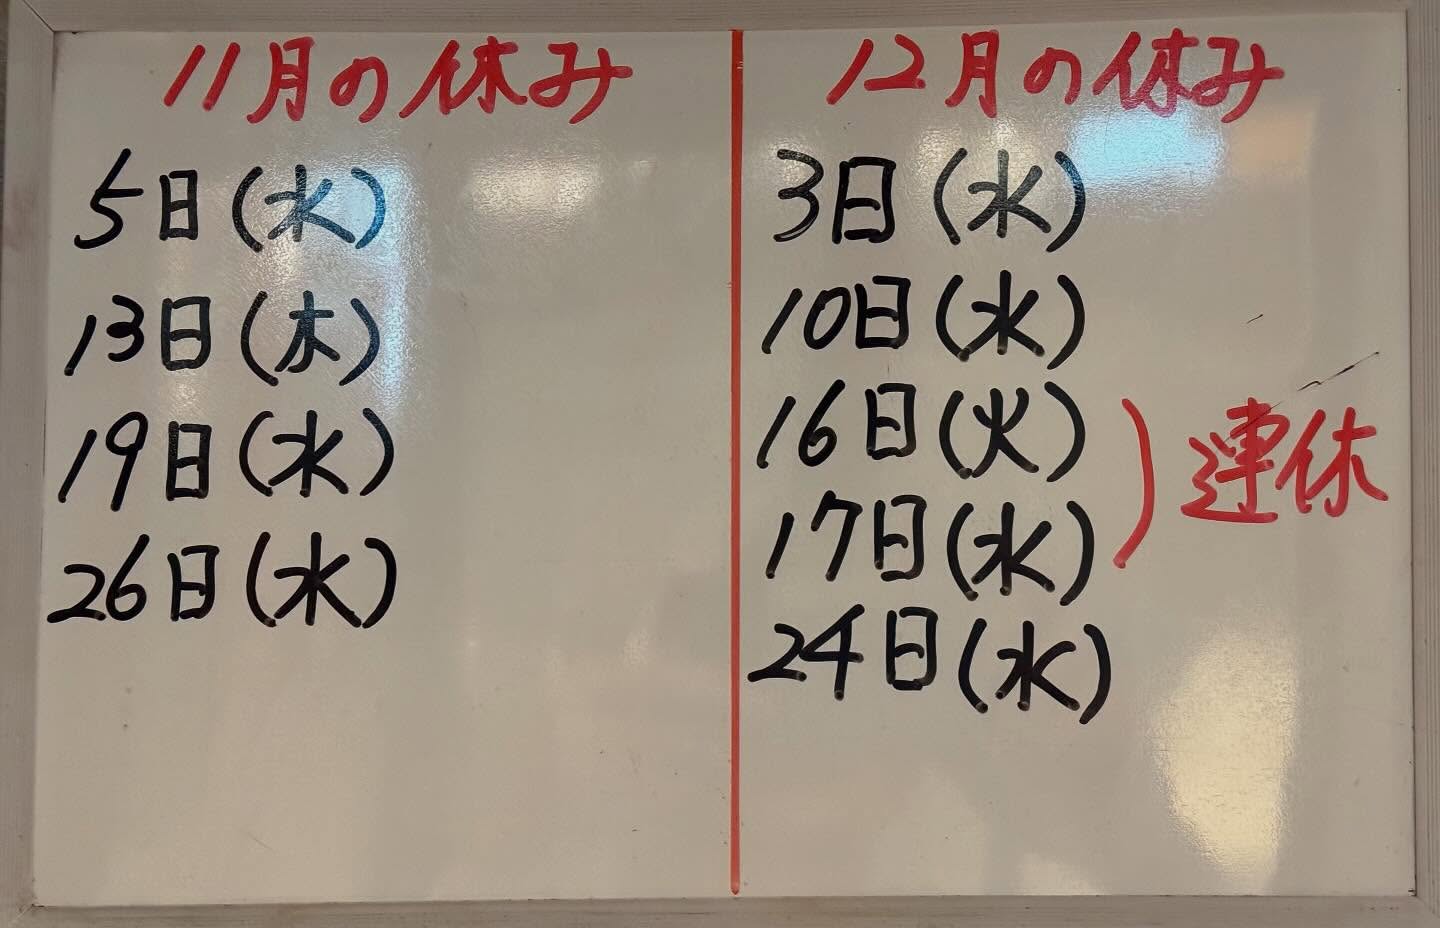 11月の休み
5日(水)
13日(木)
19日(水)
26日(水)
12月の休み
3日(水)
10日(水)
16日(火)
17日(水)
連休
24日(水)